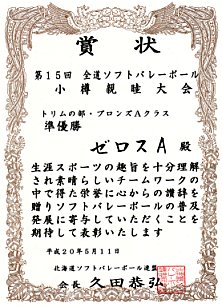 賞状
第15回 全道ソフトバレーボール
小樽親睦大会
トリムの部・ブロンズAクラス
準優勝
ゼロスA 殿
生涯スポーツの趣旨を十分理解
され素晴らしいチームワークの
中で得た栄誉に心からの讃辞を
贈りソフトバレーボールの普及
発展に寄与していただくことを
期待して表彰いたします
平成20年5月11日
北海道ソフトバレーボール連盟
会長 久田恭弘